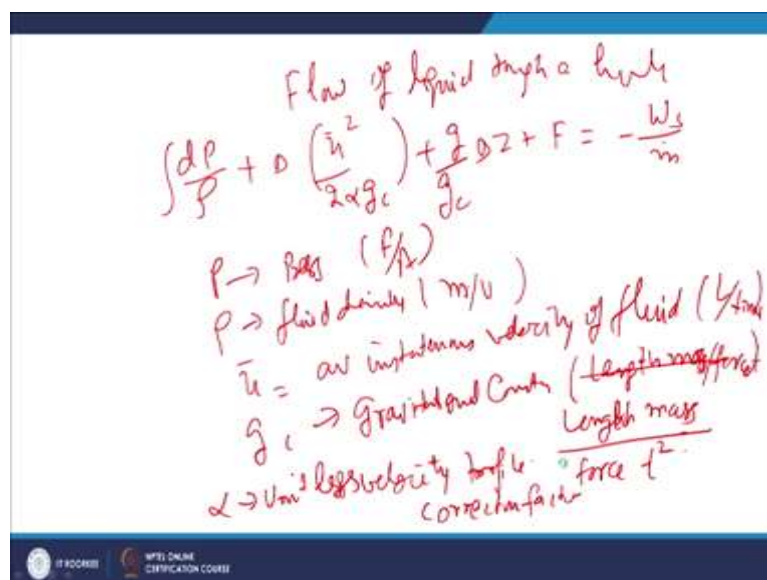 Flow of liquid through a hole
∫ dP/ρ + Δ (ū²/2αg_c) + g/g_c ΔZ + F = - W_s/ṁ
P → (F/A)
ρ → fluid density (m/v)
ū = av instantaneous velocity of fluid (L/time)
g_c → Gravitational Constn (Length mass/force t²)
α → velocity profile
correction factor
IIT ROORKEE NPTEL ONLINE
CERTIFICATION COURSE